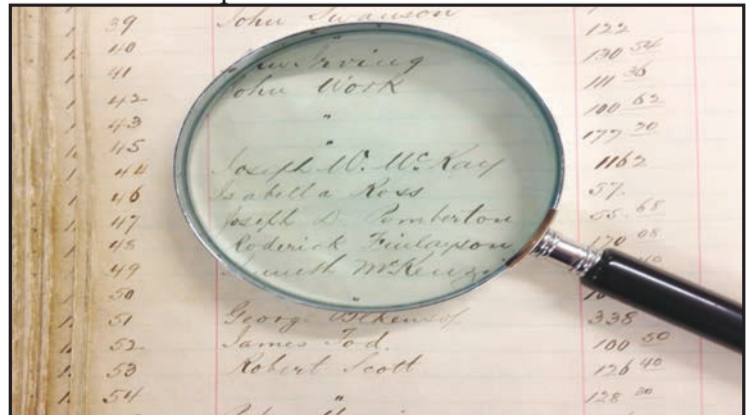 39 John Swanson 122
40 Irving 130 54
41 John Work 111 36
42 " 100 62
43 " 177 20
45
44 Joseph W. McKay 1162
46 Isabella Ross 57.
47 Joseph D. Pemberton 55.68
48 Roderick Finlayson 170 08
49 Kenneth McKenzie
50 "
51 George 338
52 James Tod. 100 50
53 Robert Scott 126 40
54 " 128 20